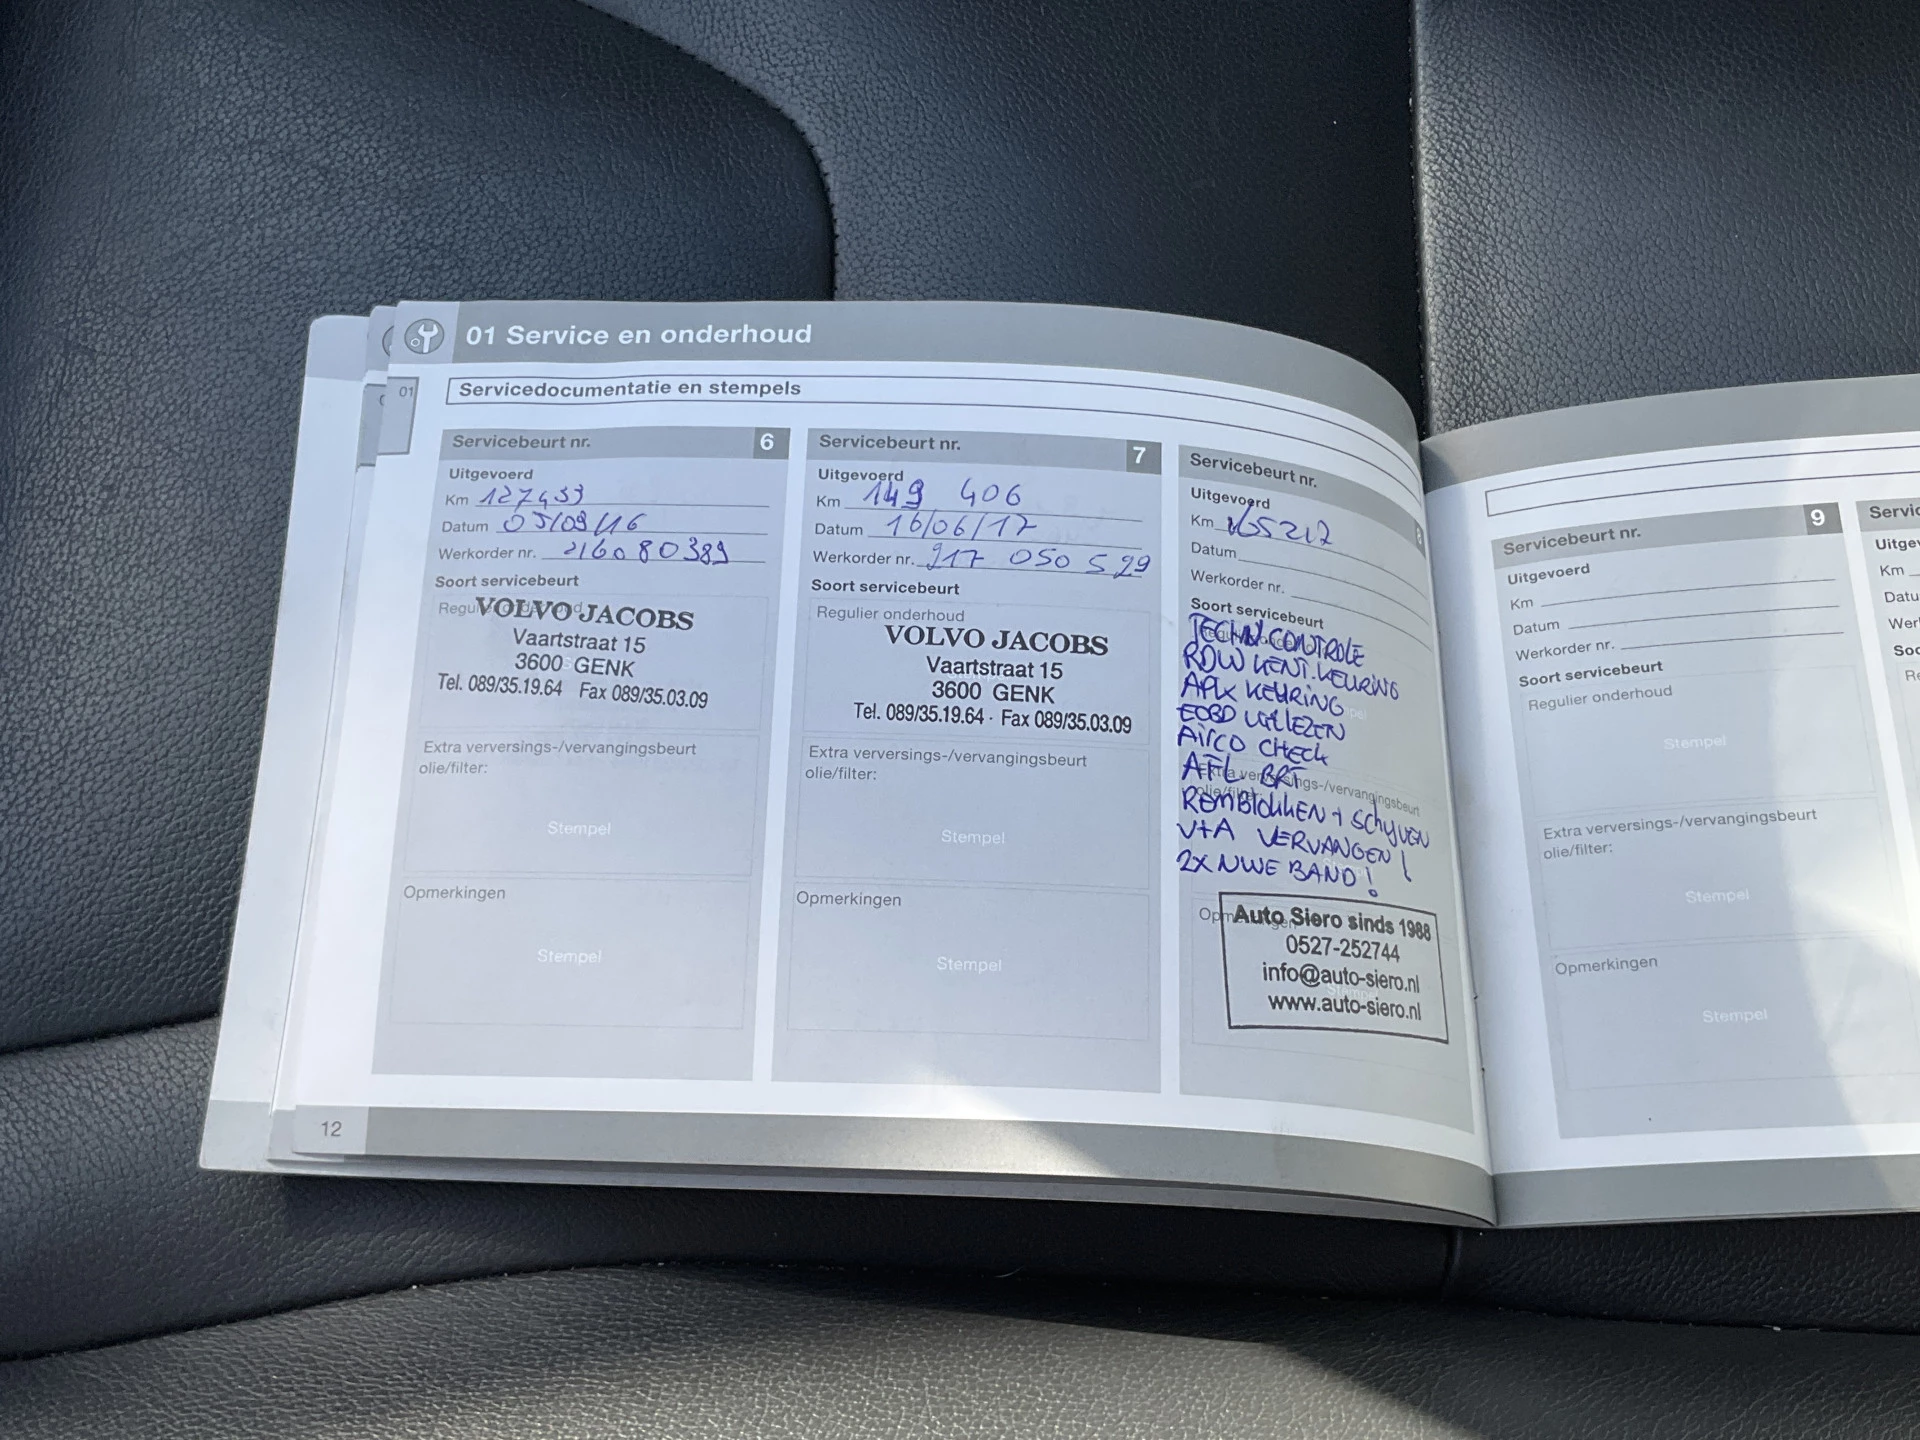 01 Service en onderhoud
01
Servicedocumentatie en stempels
Servicebeurt nr. 6
Uitgevoerd
Km 127433
Datum 05/09/16
Werkorder nr. 216080389
Soort servicebeurt
Regulier onderhoud
VOLVO JACOBS
Vaartstraat 15
3600 GENK
Tel. 089/35.19.64 Fax 089/35.03.09
Extra verversings-/vervangingsbeurt
olie/filter:
Stempel
Opmerkingen
Stempel
Servicebeurt nr. 7
Uitgevoerd
Km 149 406
Datum 16/06/17
Werkorder nr. 217 050 529
Soort servicebeurt
Regulier onderhoud
VOLVO JACOBS
Vaartstraat 15
3600 GENK
Tel. 089/35.19.64 · Fax 089/35.03.09
Extra verversings-/vervangingsbeurt
olie/filter:
Stempel
Opmerkingen
Stempel
Servicebeurt nr.
Uitgevoerd
Km 165217
Datum
Werkorder nr.
Soort servicebeurt
TECHN CONTROLE
RDW KENT. KEURING
APK KEURING
EOBD UITLEZEN
AIRCO CHECK
AFL BRT
Extra verversings-/vervangingsbeurt
olie/filter:
REMBLOKKEN + SCHYVEN
V+A VERVANGEN!
2X NWE BAND!
Auto Siero sinds 1988
0527-252744
info@auto-siero.nl
www.auto-siero.nl
12
Servicebeurt nr. 9
Uitgevoerd
Km
Datum
Werkorder nr.
Soort servicebeurt
Regulier onderhoud
Stempel
Extra verversings-/vervangingsbeurt
olie/filter:
Stempel
Opmerkingen
Stempel
Servic
Uitgev
Km
Datu
Werk
Soo
Re